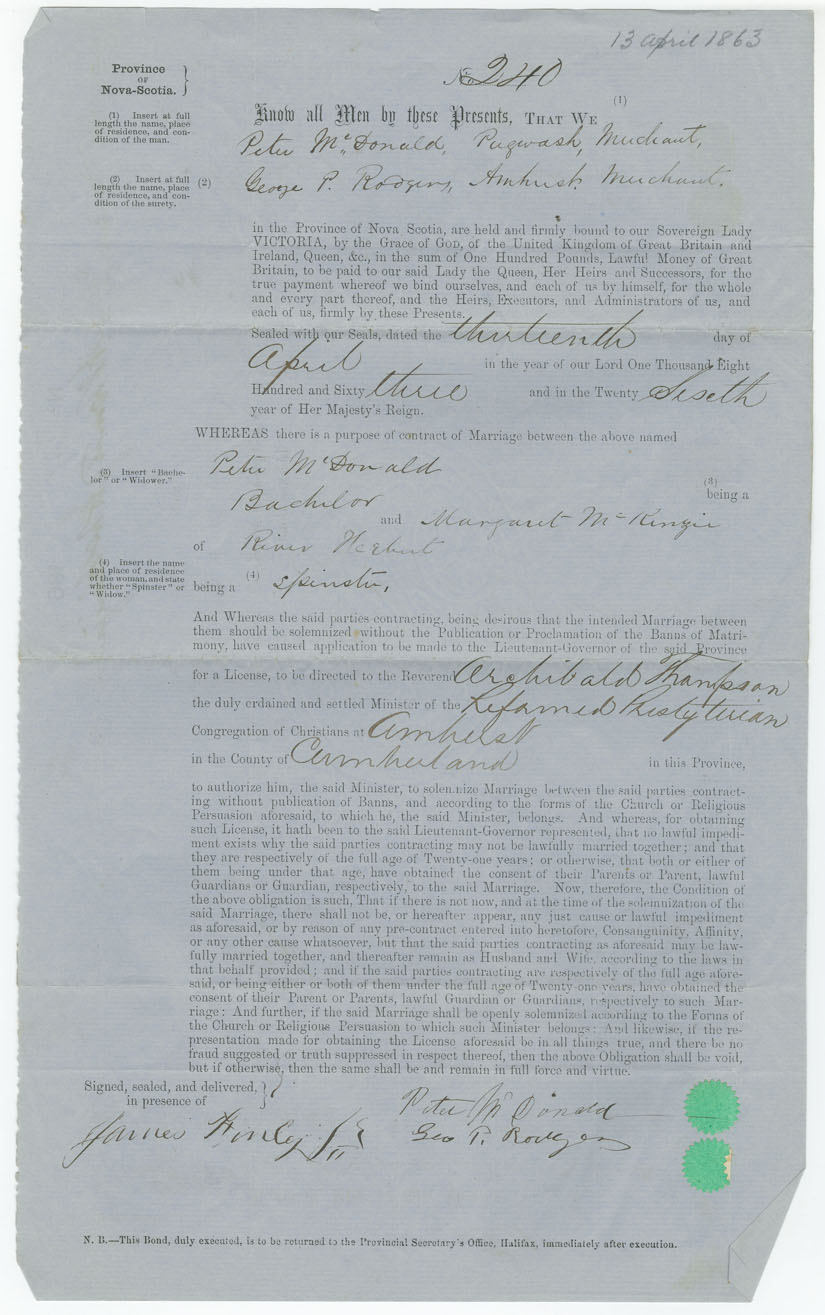 13 April 1863
Province
OF
Nova-Scotia.
No 240
(1) Insert at full
length the name, place
of residence, and con-
dition of the man.
(1)
Know all Men by these Presents, THAT WE
Peter McDonald, Pugwash, Merchant,
(2) Insert at full
length the name, place
of residence, and con-
dition of the surety.
(2)
George P. Rodgers, Amherst Merchant.
in the Province of Nova Scotia, are held and firmly bound to our Sovereign Lady
VICTORIA, by the Grace of GOD, of the United Kingdom of Great Britain and
Ireland, Queen, &c., in the sum of One Hundred Pounds, Lawful Money of Great
Britain, to be paid to our said Lady the Queen, Her Heirs and Successors, for the
true payment whereof we bind ourselves, and each of us by himself, for the whole
and every part thereof, and the Heirs, Executors, and Administrators of us, and
each of us, firmly by these Presents.
Sealed with our Seals, dated the thirteenth day of
April in the year of our Lord One Thousand Eight
Hundred and Sixty three and in the Twenty Sixeth
year of Her Majesty's Reign.
WHEREAS there is a purpose of contract of Marriage between the above named
(3) Insert "Bache-
lor" or "Widower."
Peter McDonald
(3)
being a
Bachelor
and Margaret McKenzie
of River Hebert
(4) Insert the name
and place of residence
of the woman, and state
whether "Spinster" or
"Widow."
being a (4) Spinster,
And Whereas the said parties contracting, being desirous that the intended Marriage between
them should be solemnized without the Publication or Proclamation of the Banns of Matri-
mony, have caused application to be made to the Lieutenant-Governor of the said Province
for a License, to be directed to the Reverend Archibald Thompson
the duly ordained and settled Minister of the Reformed Presbyterian
Congregation of Christians at Amherst
in the County of Cumberland in this Province,
to authorize him, the said Minister, to solemnize Marriage between the said parties contract-
ing without publication of Banns, and according to the forms of the Church or Religious
Persuasion aforesaid, to which he, the said Minister, belongs. And whereas, for obtaining
such License, it hath been to the said Lieutenant-Governor represented, that no lawful impedi-
ment exists why the said parties contracting may not be lawfully married together; and that
they are respectively of the full age of Twenty-one years; or otherwise, that both or either of
them being under that age, have obtained the consent of their Parents or Parent, lawful
Guardians or Guardian, respectively, to the said Marriage. Now, therefore, the Condition of
the above obligation is such, That if there is not now, and at the time of the solemnization of the
said Marriage, there shall not be, or hereafter appear, any just cause or lawful impediment
as aforesaid, or by reason of any pre-contract entered into heretofore, Consanguinity, Affinity,
or any other cause whatsoever, but that the said parties contracting as aforesaid may be law-
fully married together, and thereafter remain as Husband and Wife, according to the laws in
that behalf provided; and if the said parties contracting are respectively of the full age afore-
said, or being either or both of them under the full age of Twenty-one years, have obtained the
consent of their Parent or Parents, lawful Guardian or Guardians, respectively to such Mar-
riage: And further, if the said Marriage shall be openly solemnized according to the Forms of
the Church or Religious Persuasion to which such Minister belongs: And likewise, if the re-
presentation made for obtaining the License aforesaid be in all things true, and there be no
fraud suggested or truth suppressed in respect thereof, then the above Obligation shall be void,
but if otherwise, then the same shall be and remain in full force and virtue.
Signed, sealed, and delivered,
in presence of
Peter McDonald
James
Geo P. Rodgers
N. B.—This Bond, duly executed, is to be returned to the Provincial Secretary's Office, Halifax, immediately after execution.